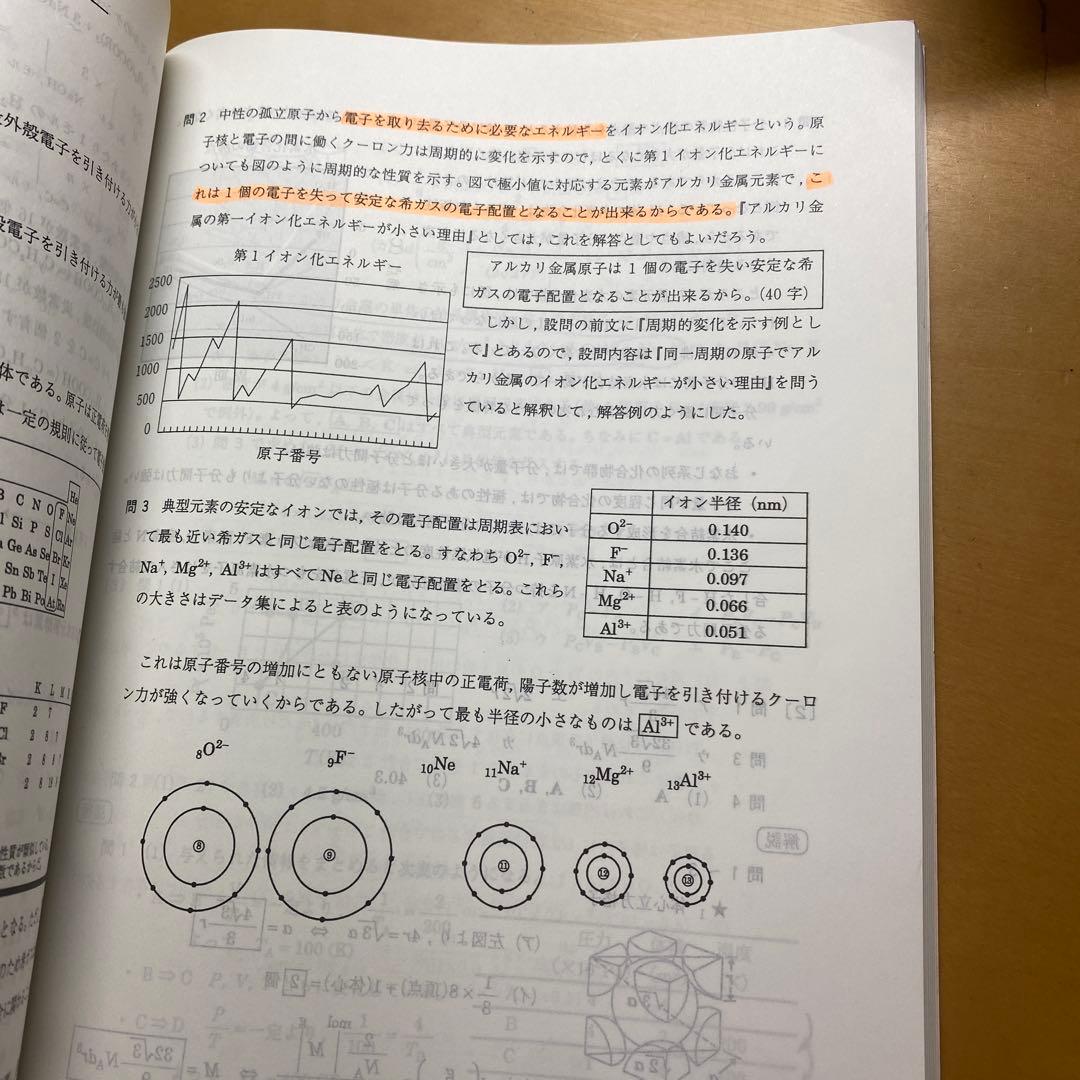 外殻電子を引き付ける力が
設電子を引き付ける力が
体である。原子は正電荷
は一定の規則に従って電
He
B C N O F Ne
Si P S Cl Ar
Ga Ge As Se Br Kr
Sn Sb Te I Xe
Pb Bi Po At Rn
K L M
F 2 7
Cl 2 8 7
性質が類似している
数であるからだ
となる。ただ
問2 中性の孤立原子から電子を取り去るために必要なエネルギーをイオン化エネルギーという。原
子核と電子の間に働くクーロン力は周期的に変化を示すので,とくに第1イオン化エネルギーに
ついても図のように周期的な性質を示す。図で極小値に対応する元素がアルカリ金属元素で,こ
れは1個の電子を失って安定な希ガスの電子配置となることが出来るからである。『アルカリ金
属の第一イオン化エネルギーが小さい理由』としては,これを解答としてもよいだろう。
第1イオン化エネルギー
2500
2000
1500
1000
500
0
原子番号
アルカリ金属原子は1個の電子を失い安定な希
ガスの電子配置となることが出来るから。(40字)
しかし,設問の前文に『周期的変化を示す例とし
て』とあるので,設問内容は『同一周期の原子でアル
カリ金属のイオン化エネルギーが小さい理由』を問う
ていると解釈して,解答例のようにした。
問3 典型元素の安定なイオンでは,その電子配置は周期表におい
て最も近い希ガスと同じ電子配置をとる。すなわちO²⁻ F⁻,
Na⁺, Mg²⁺, Al³⁺はすべてNeと同じ電子配置をとる。これら
の大きさはデータ集によると表のようになっている。
イオン半径 (nm)
O²⁻ 0.140
F⁻ 0.136
Na⁺ 0.097
Mg²⁺ 0.066
Al³⁺ 0.051
これは原子番号の増加にともない原子核中の正電荷,陽子数が増加し電子を引き付けるクーロ
ン力が強くなっていくからである。したがって最も半径の小さなものは Al³⁺ である。
₈O²⁻ ₉F⁻ ₁₀Ne ₁₁Na⁺ ₁₂Mg²⁺ ₁₃Al³⁺
⑧ ⑨ ⑪ ⑫ ⑬